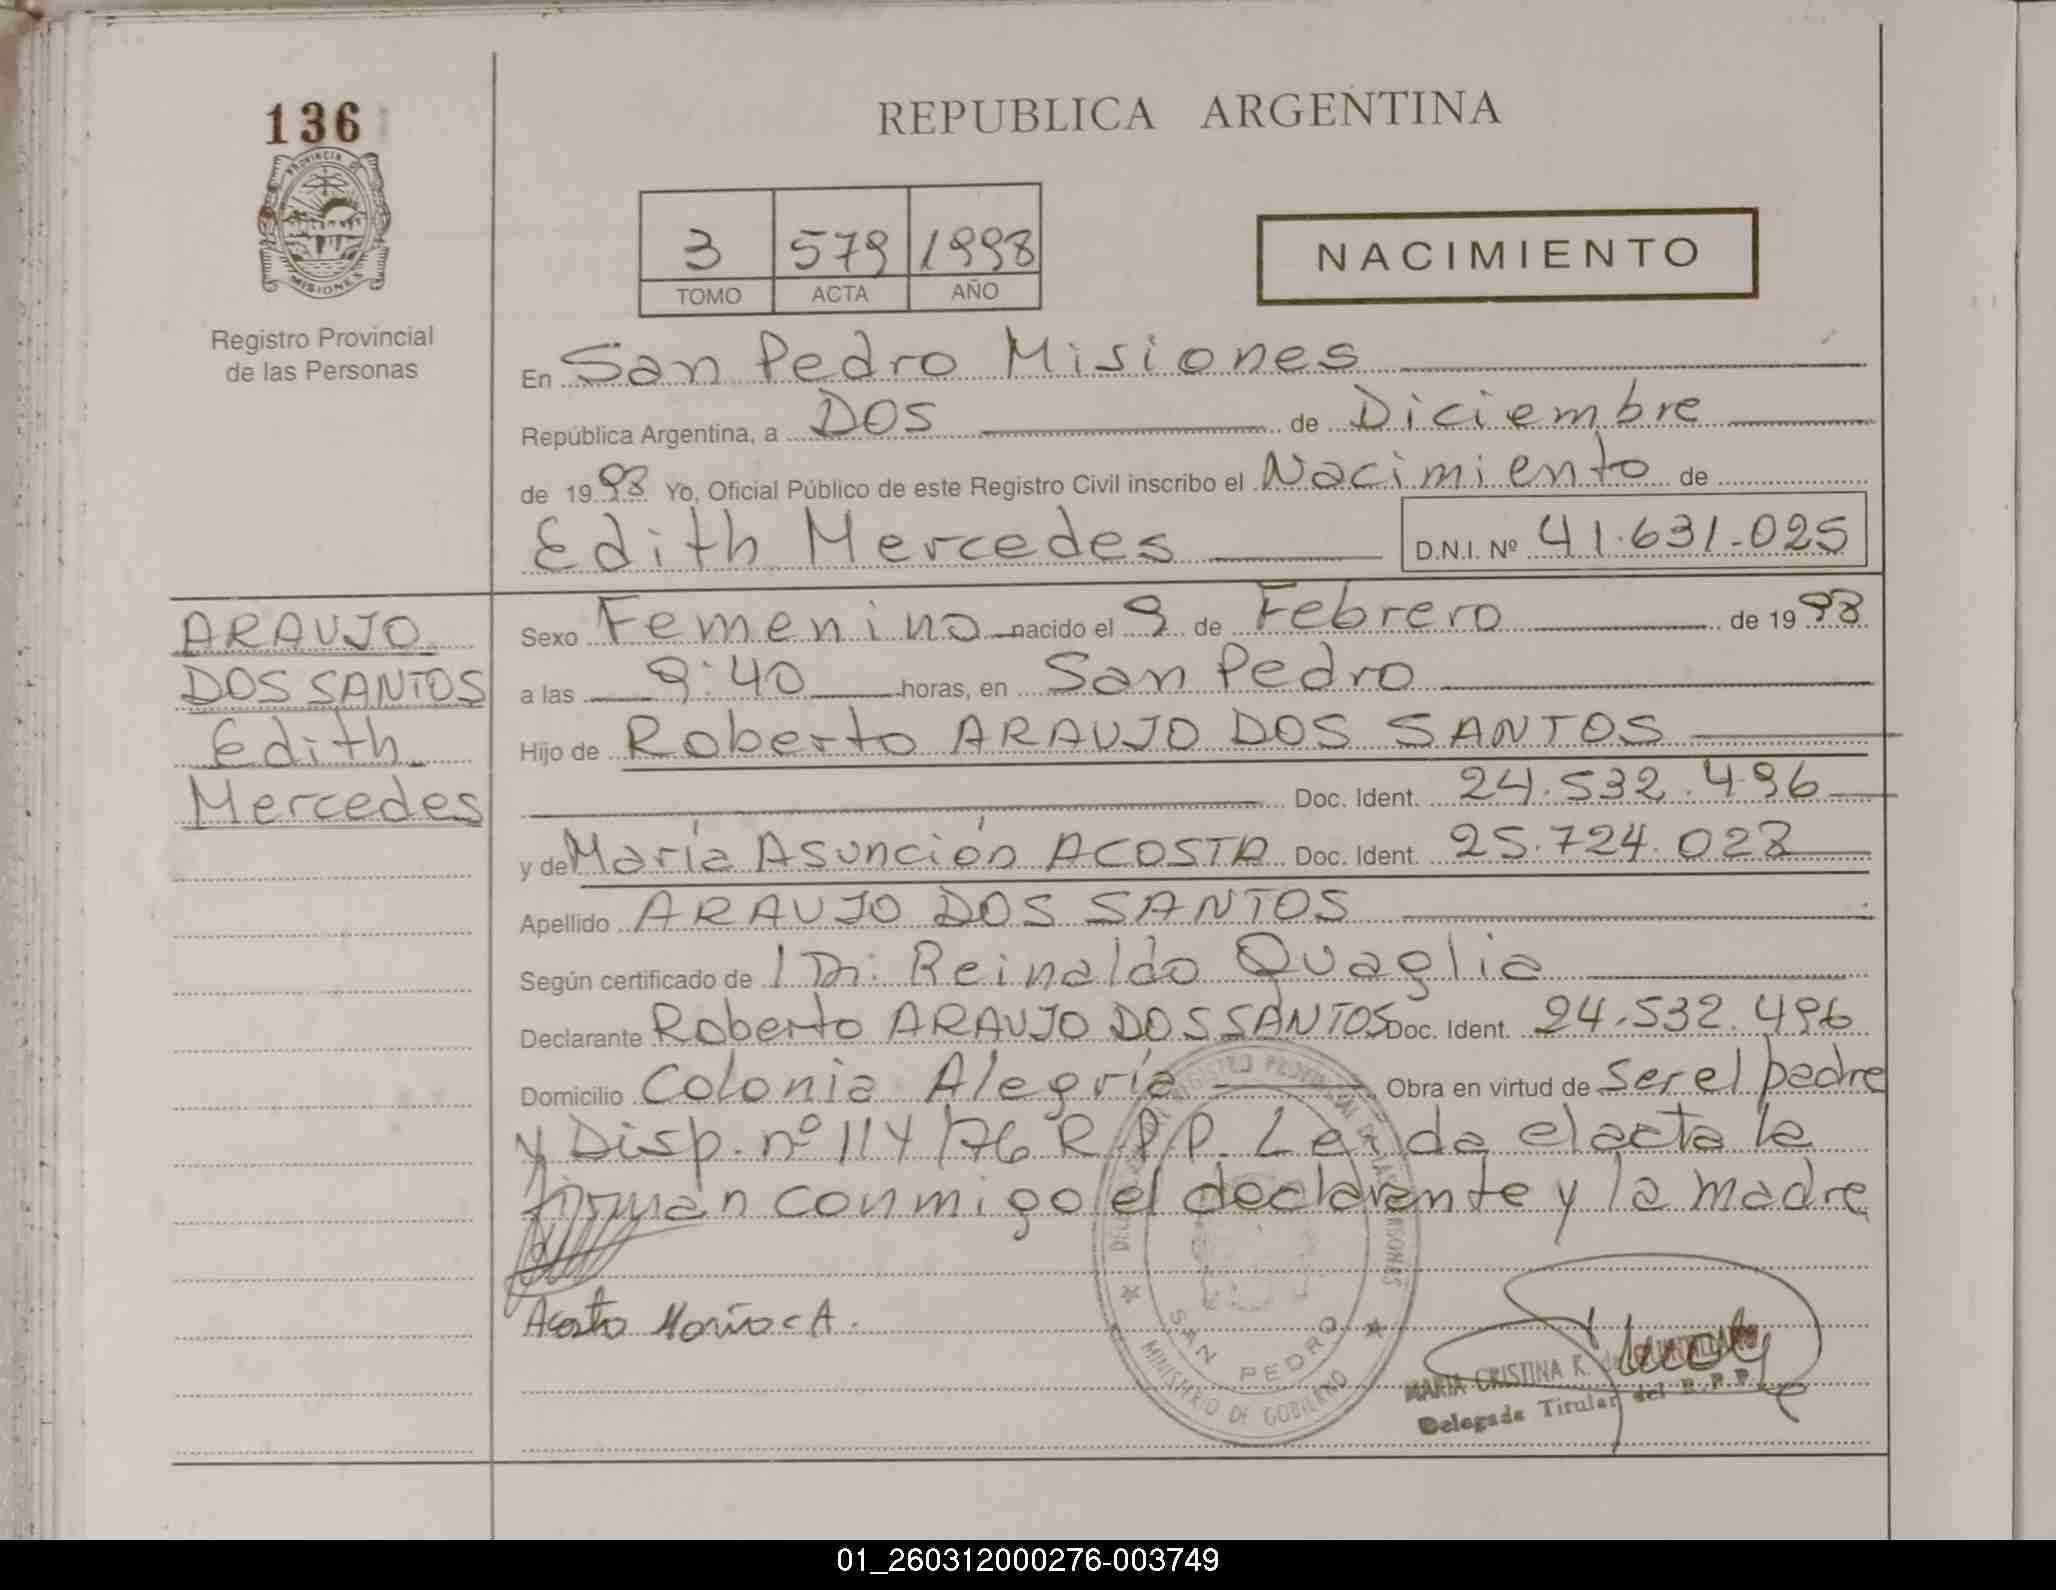 136
PROVINCIA DE
MISIONES
Registro Provincial
de las Personas
REPUBLICA ARGENTINA
3 579 1998
TOMO ACTA AÑO
NACIMIENTO
En San Pedro Misiones
República Argentina, a DOS de Diciembre
de 1998 Yo, Oficial Público de este Registro Civil inscribo el Nacimiento de
Edith Mercedes D.N.I. Nº 41.631.025
ARAUJO
DOS SANTOS
Edith
Mercedes
Sexo Femenino nacido el 9 de Febrero de 1998
a las 9:40 horas, en San Pedro
Hijo de Roberto ARAUJO DOS SANTOS
Doc. Ident. 24.532.496
y de María Asunción ACOSTA Doc. Ident. 25.724.028
Apellido ARAUJO DOS SANTOS
Según certificado de Reinaldo Quaglia
Declarante Roberto ARAUJO DOS SANTOS Doc. Ident. 24.532.496
Domicilio Colonia Alegría Obra en virtud de Ser el padre
y Disp. nº 114/76 R.P.P. Leida el acta la
firman conmigo el declarante y la madre
Acosta Maria A.
SAN PEDRO
MINISTERIO DE GOBIERNO
MARIA CRISTINA R. de
Delegada Titular del R.P.P.
01_260312000276-003749